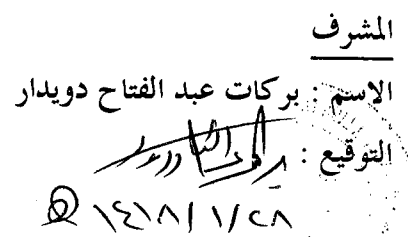 المشرف
الاسم : بركات عبد الفتاح دويدار
التوقيع :
١٤١٨/١/٢٨